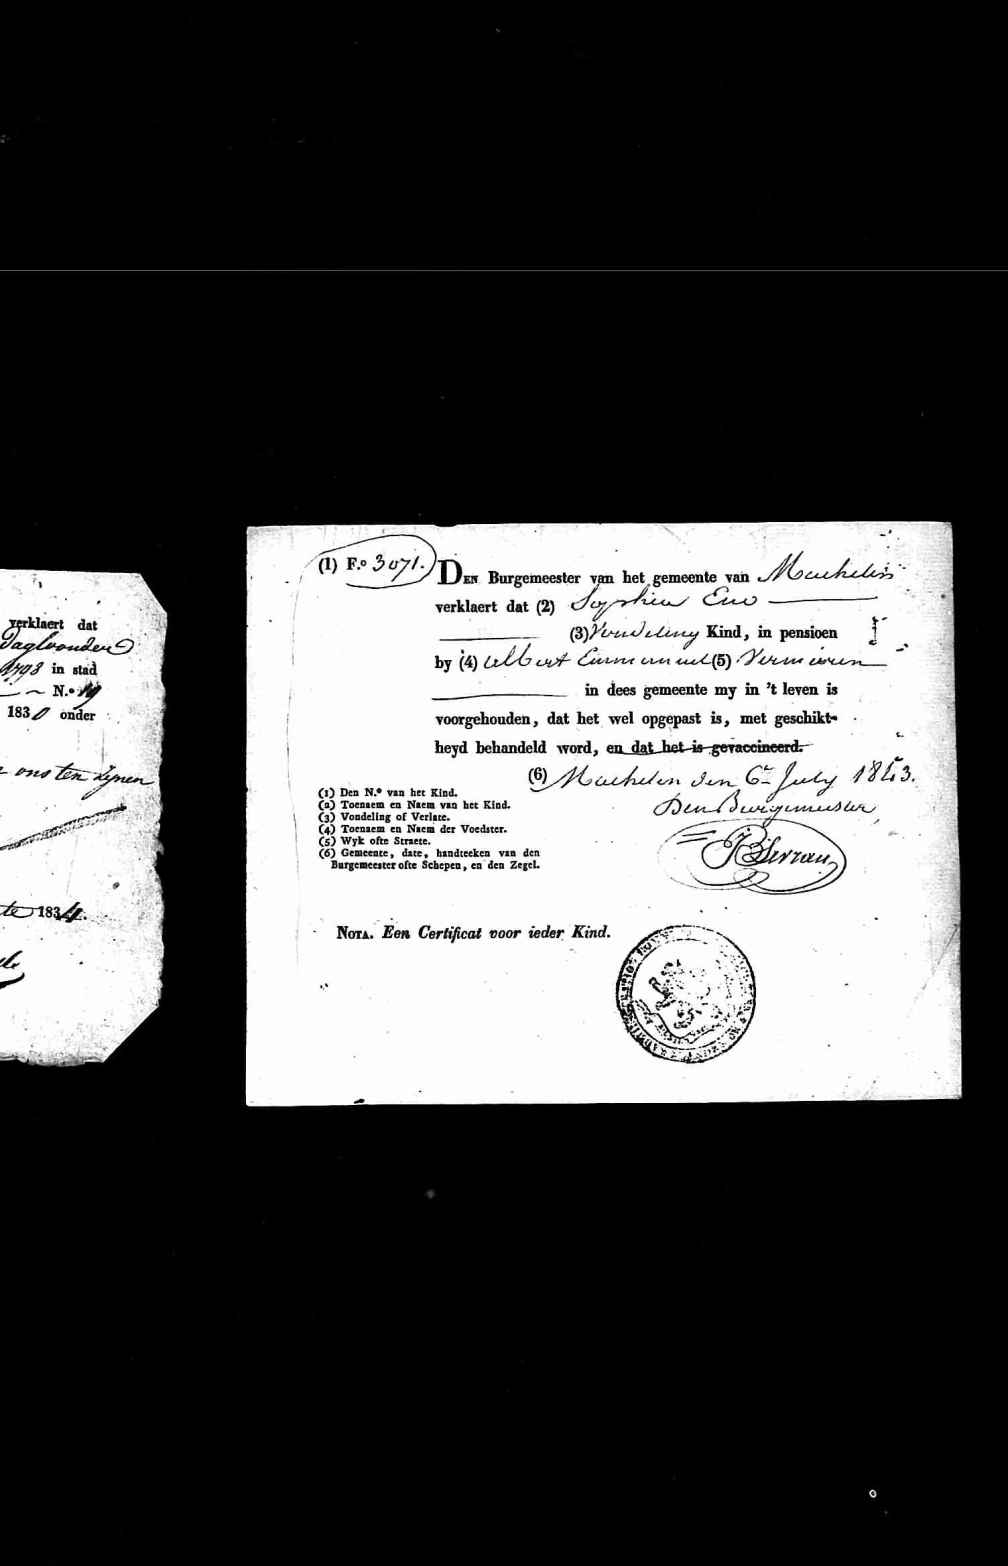 verklaert dat
Dagloonder
1793 in stad
N.º 19
1830 onder
ons ten zynen
1834.
(1) F.º 3071.
DEN Burgemeester van het gemeente van Machelen
verklaert dat (2) Sophia Eno
(3) Vondeling Kind, in pensioen
by (4) Albert Emmanuel (5)
in dees gemeente my in 't leven is
voorgehouden, dat het wel opgepast is, met geschikt-
heyd behandeld word, en dat het is gevaccineerd.
(6) Machelen den 6 July 1843.
Den Burgemeester
(1) Den N.º van het Kind.
(2) Toenaem en Naem van het Kind.
(3) Vondeling of Verlate.
(4) Toenaem en Naem der Voedster.
(5) Wyk ofte Straete.
(6) Gemeente, date, handteeken van den
Burgemeester ofte Schepen, en den Zegel.
NOTA. Een Certificat voor ieder Kind.